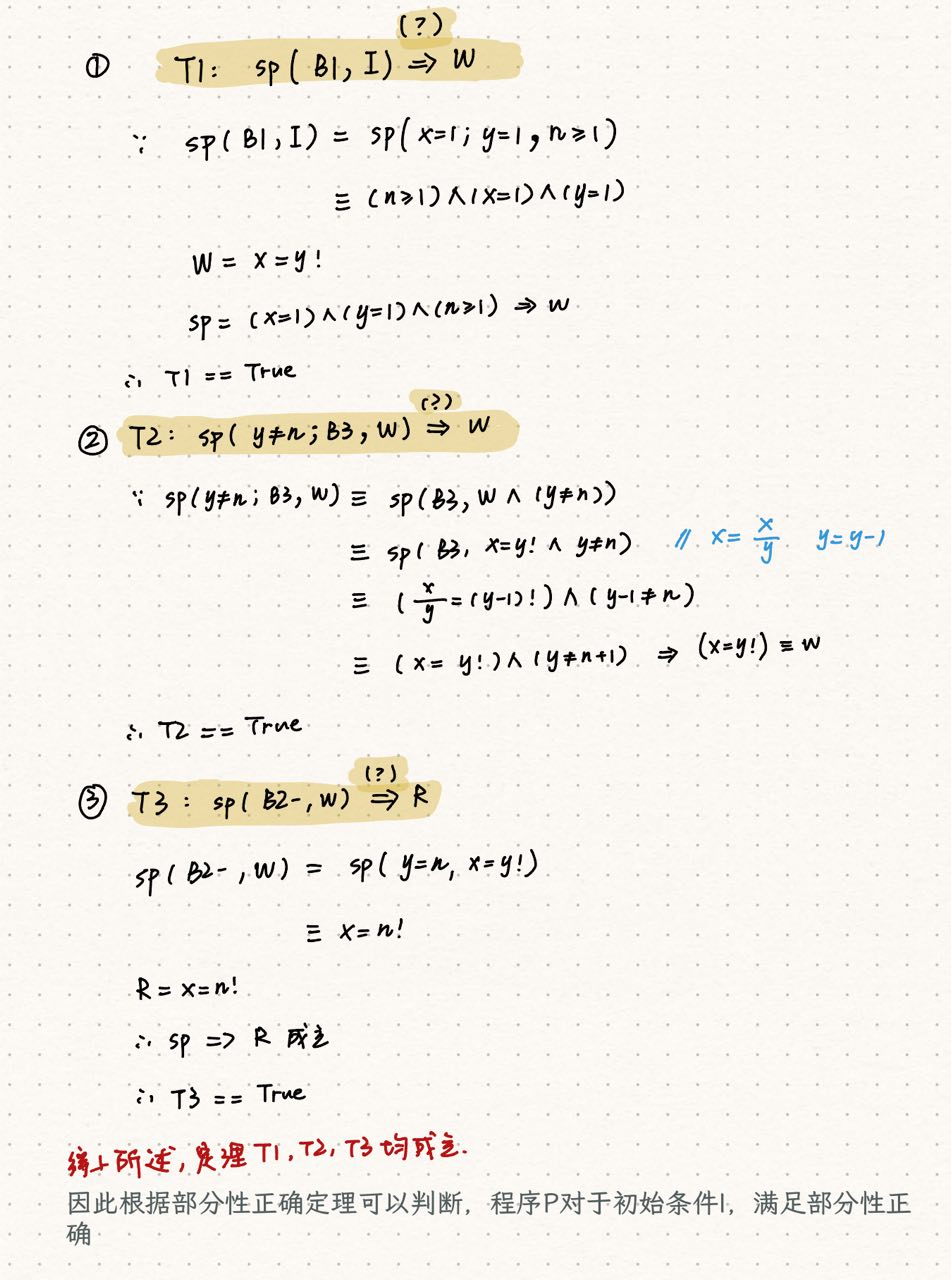 (?)
① T1: sp( B1, I) ⇒ W
∵ sp( B1, I) = sp( x=1; y=1, n≥1)
≡ (n≥1)∧(x=1)∧(y=1)
W = x=y!
sp = (x=1)∧(y=1)∧(n≥1) ⇒ W
∴ T1 == True
(?)
② T2: sp( y≠n; B3, W) ⇒ W
∵ sp(y≠n; B3, W) ≡ sp(B3, W ∧ (y≠n))
≡ sp( B3, x=y! ∧ y≠n) // x= x/y y=y-1
≡ (x/y=(y-1)!)∧(y-1≠n)
≡ (x= y!)∧(y≠n+1) ⇒ (x=y!) ≡ W
∴ T2 == True
(?)
③ T3: sp( B2-, W) ⇒ R
sp( B2-, W) = sp( y=n, x=y!)
≡ x=n!
R=x=n!
∴ sp => R 成立
∴ T3 == True
综上所述,定理T1,T2,T3均成立.
因此根据部分性正确定理可以判断，程序P对于初始条件I，满足部分性正
确